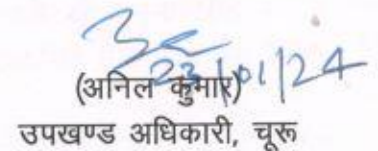 23/01/24
(अनिल कुमार)
उपखण्ड अधिकारी, चूरू